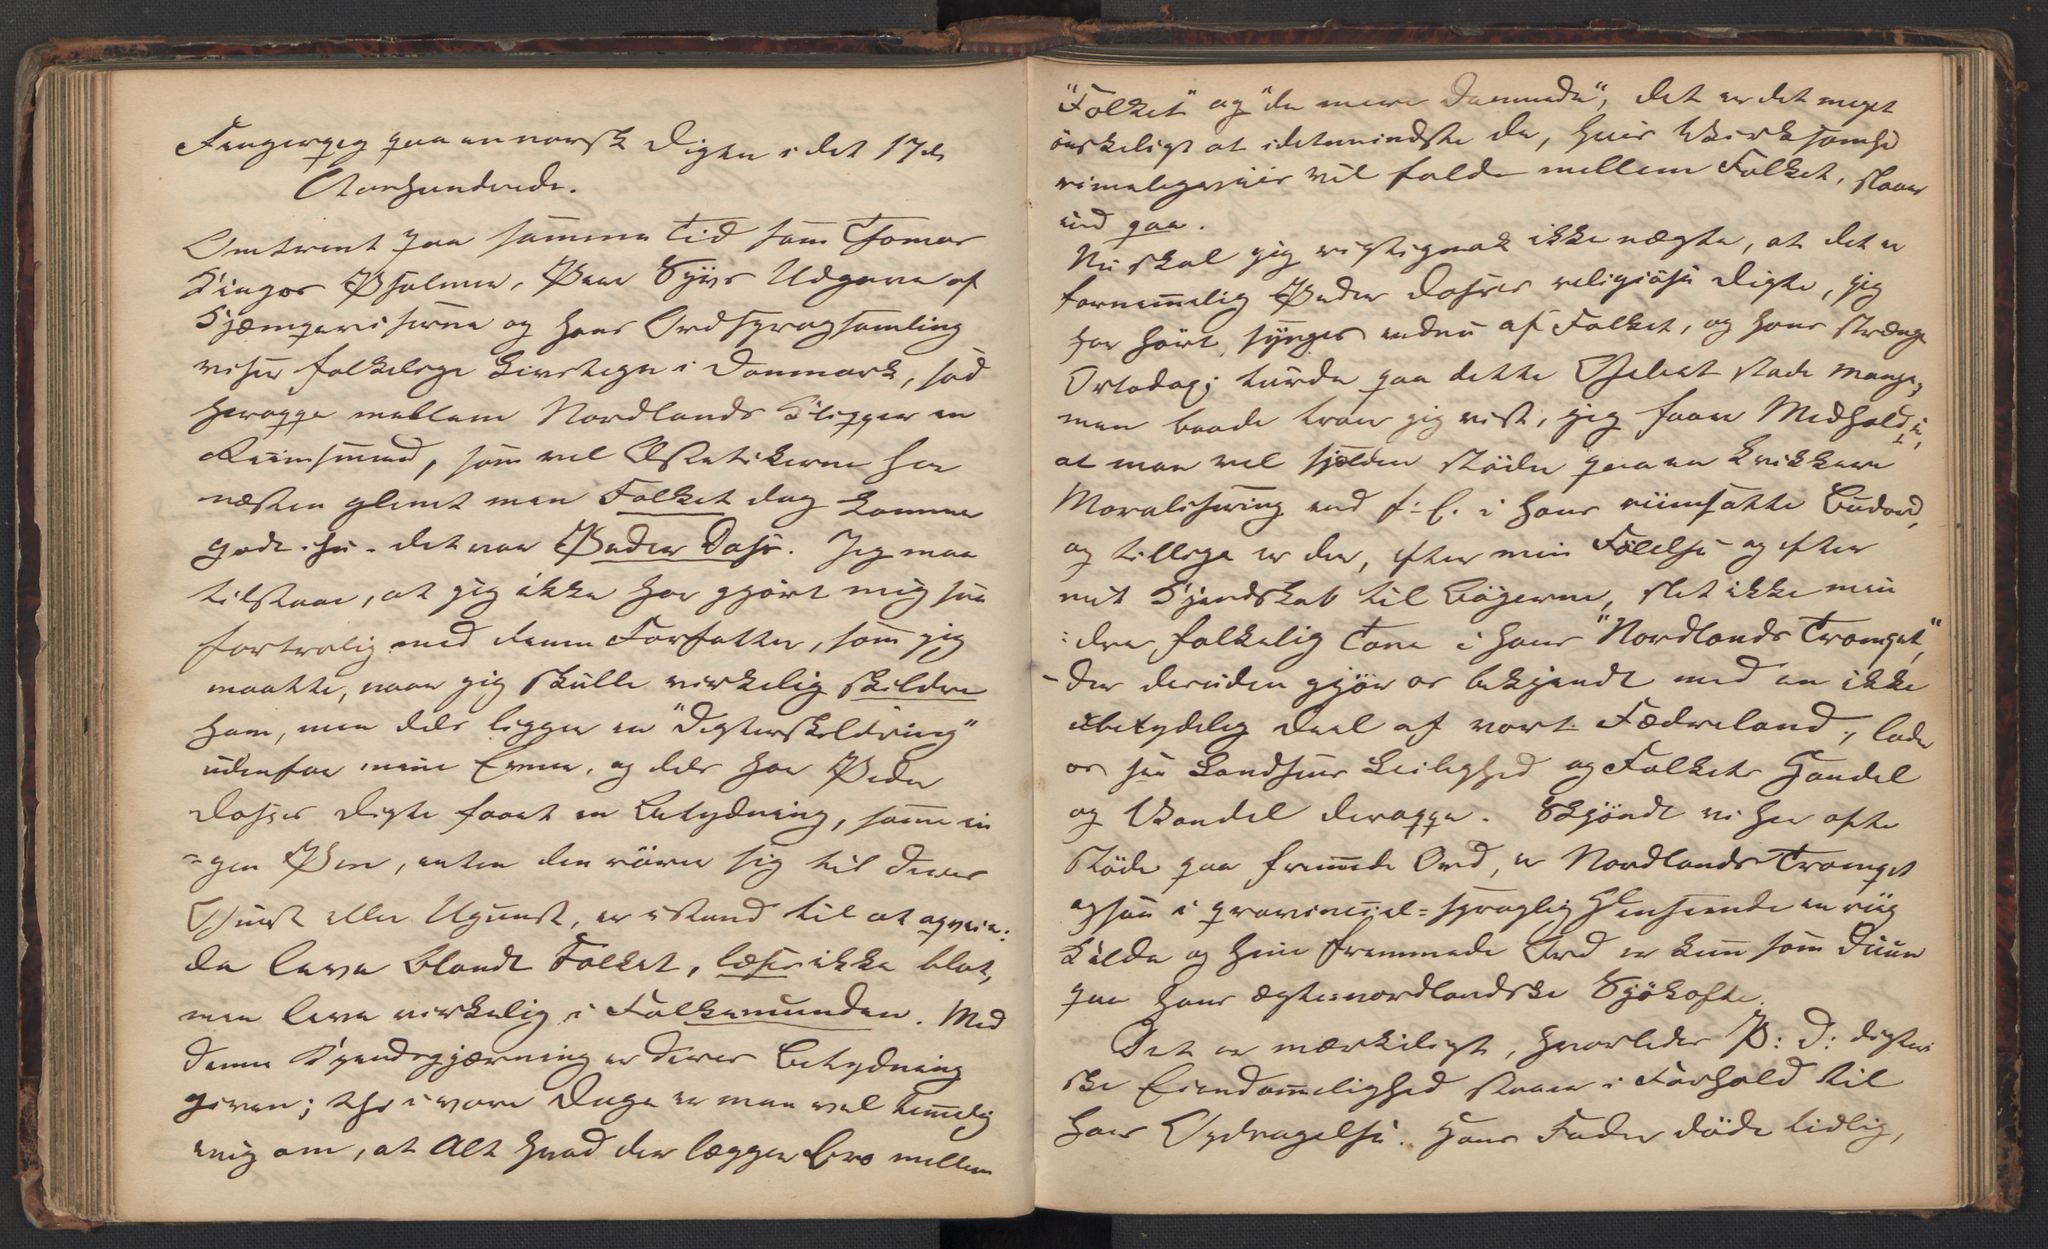 Fingerpeg paa en norsk Digter i det 17de
Aarhundrede.
Omtrent paa samme Tid som Thomas
Kingos Psalmer, Peer Syvs Udgave af
Kjæmpeviserne og hans Ordsprogsamling
viser folkelige Livstegn i Danmark, sad
heroppe mellem Nordlands Klipper en
Riimsmed, som vel Æstetikerne har
næsten glemt men Folket dog komme
godt ihu - det var Peder Dass. Jeg maa
tilstaae, at jeg ikke har gjört mig saa
fortrolig med denne Forfatter, som jeg
maatte, naar jeg skulle virkelig skildre
ham, men dels ligger en "Digterskildring"
udenfor mine Evner, og dels har Peder
Dasses Digte faaet en Betydning, som in
=gen Pen, enten den rörer sig til deres
Gunst eller Ugunst, er istand til at opveie:
de leve blandt Folket, læses ikke blot,
men leve virkelig i Folkemunden. Med
denne Kjendsgjærning er deres Betydning
given; thi i vore Dage er man vel temmelig
enig om, at Alt hvad der lægger Bro mellem
"Folket" og "de mere Dannede", det er det meget
önskeligt at idetmindste de, hvis Virksomhed
rimeligviis vil falde mellem Folket, slaaer
ind paa.
Nu skal jeg rigtignok ikke nægte, at det er
fornemmelig Peder Dasses religiöse Digte, jeg
har hört synges endnu af Folket, og hans strænge
Ortodoxi turde paa dette Gebeet stöde Mange;
men baade troer jeg vist, jeg faaer Medhold i,
at man vel sjelden stöder paa en kvikkere
Moralisering end f: E. i hans riimsatte Budord,
og tillige er der, efter min Fölelse og efter
mit Kjendskab til Bögerne, slet ikke min
:dre folkelig Tone i hans "Nordlands Trompet,"
- der desuden gjör os bekjendt med en ikke
ubetydelig Deel af vort Fædreland, lader
os see Landhuus Leilighed og Folkets Handel
og Vandel deroppe. Skjöndt vi her ofte
stöde paa fremmede Ord, er Nordlands Trompet
ogsaa i provinciel=sproglig Henseende en riig
Kilde og hine fremmede Ord er kun som Duun
paa hans ægte nordlandske Sjökofte.
Det er mærkeligt, hvorledes P: D: digteri
ske Eiendommelighed staaer i Forhold til
hans Opdragelse. Hans Fader döde tidlig,